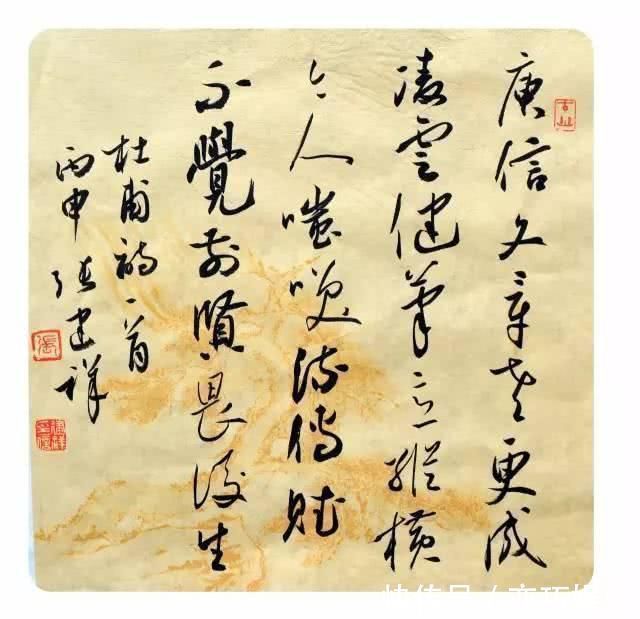 庾信文章老更成
凌雲健筆意縱橫
今人嗤點流傳賦
不覺前賢畏後生
杜甫詩一首
丙申 張建祥
張